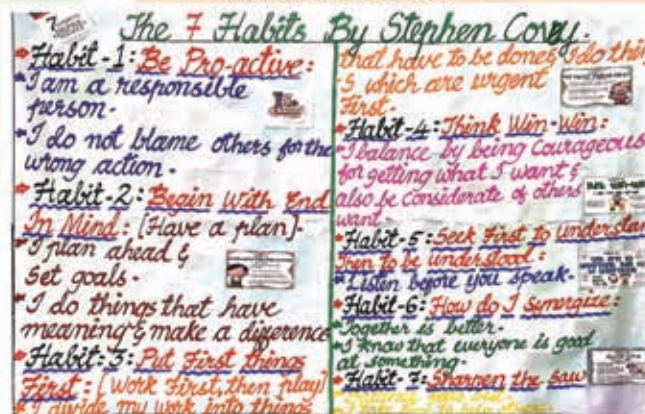 The 7 Habits By Stephen Covey.
Habit-1: Be Pro-active:
I am a responsible
person.
I do not blame others for the
wrong action.
Habit-2: Begin With End
In Mind: [Have a plan].
I plan ahead &
Set goals.
I do things that have
meaning & make a difference
Habit:3: Put First things
First: [Work First, then play]
I divide my work into things
that have to be done & I do thin
s which are urgent
First.
Habit-4: Think Win-Win:
I balance by being Courageous
for getting what I want &
also be Considerate of others
want.
Habit-5: Seek First to understan
Then to be understood:
Listen before you speak.
Habit-6: How do I synergize:
Together is better.
I know that everyone is good
at something.
Habit-7: Sharpen the saw